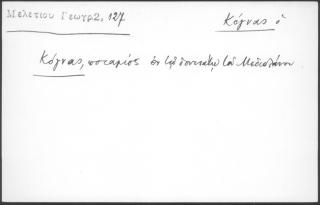 Μελετίου Γεωγρ2, 127
Κόγνας ὁ
Κόγνας, ποταμὸς ἐν τῷ δουκάτῳ τοῦ Μεδιολάνου